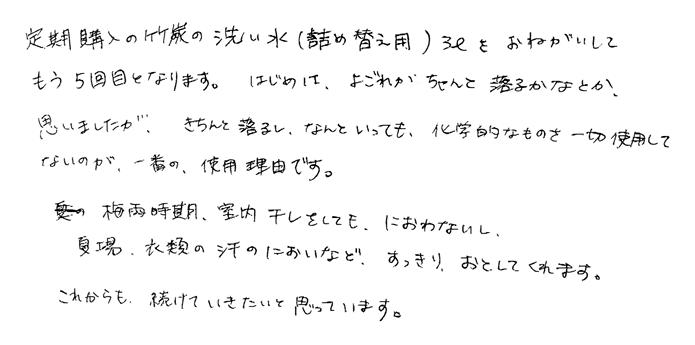 定期購入の竹炭の洗い水(詰め替え用)3ℓをおねがいして
もう5回目となります。はじめは、よごれがちゃんと落るかなとか、
思いましたが、きちんと落るし、なんといっても、化学的なものを一切使用して
ないのが、一番の、使用理由です。
梅雨時期、室内干しをしても、におわないし、
夏場、衣類の汗のにおいなど、すっきり、おとしてくれます。
これからも、続けていきたいと思っています。